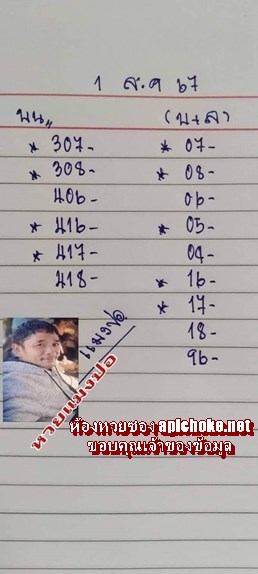 1 ส.ค 67
บน,, (บ+ล)
* 307- * 07-
* 308- * 08-
406- 06-
* 416- * 05-
* 417- 04-
418- * 16-
* 17-
18-
96-
แมงปอ
หวยแมงปอ
ห้องหวยซอง apichoke.net
ขอบคุณเจ้าของข้อมูล